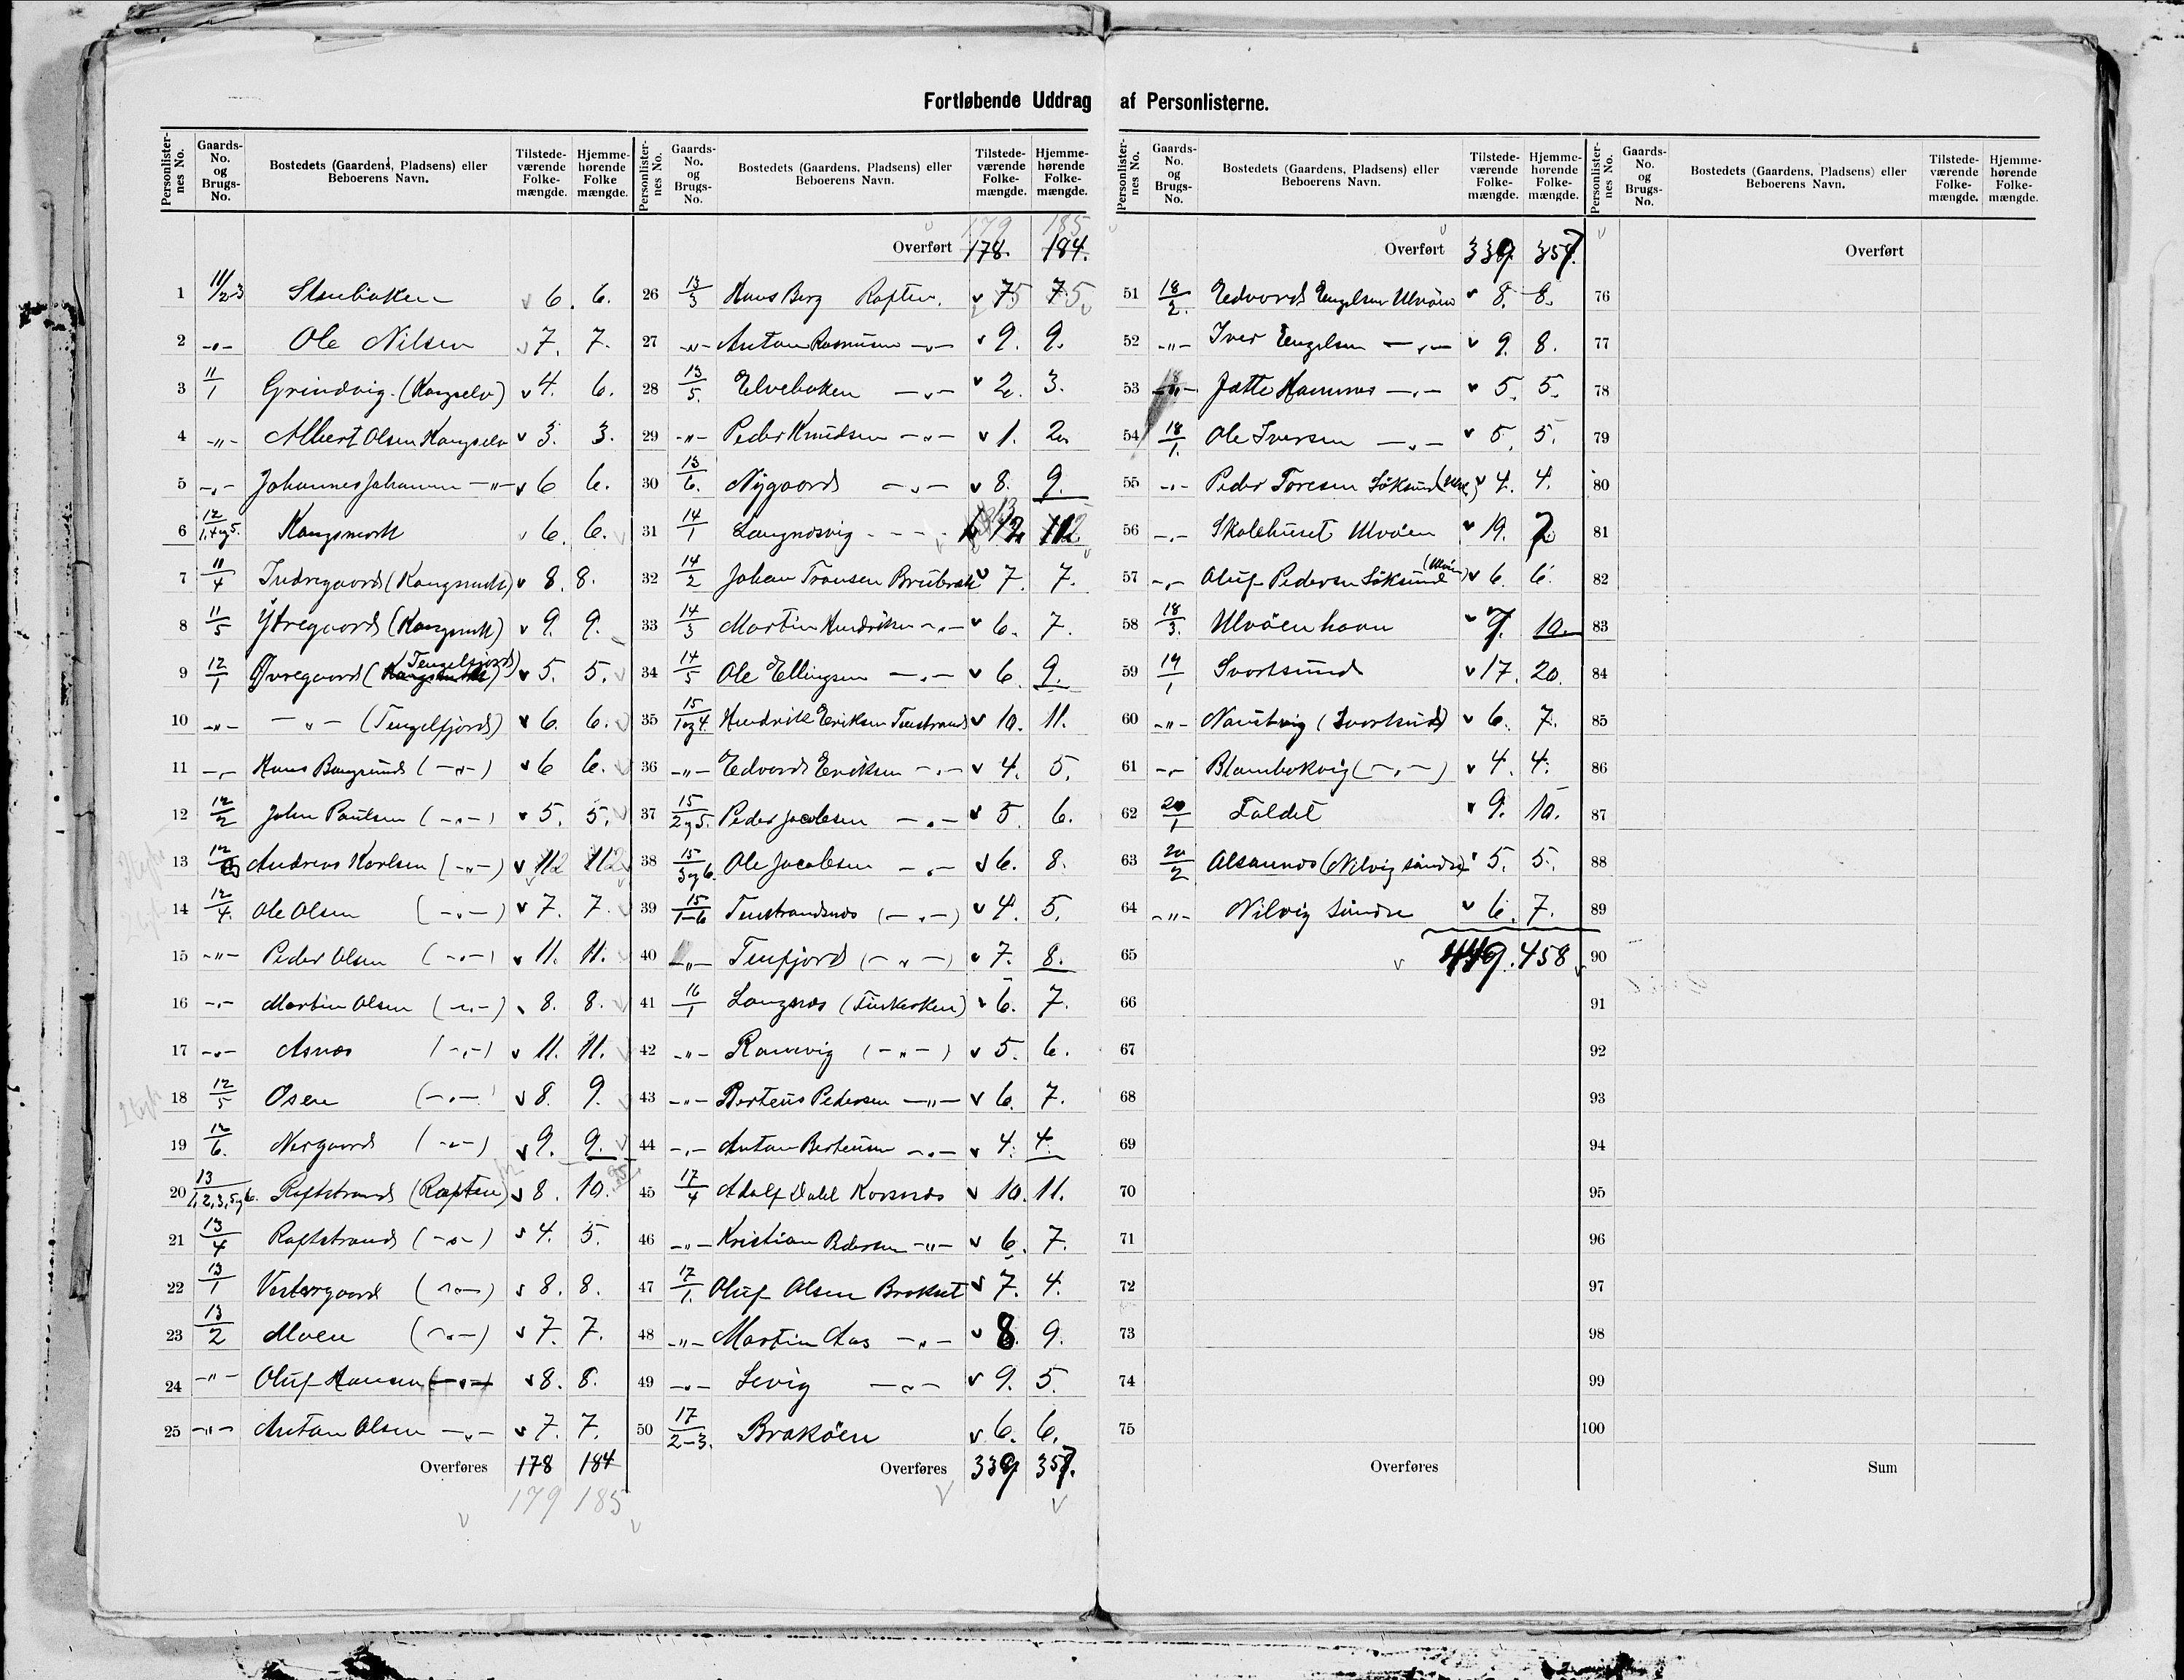 Fortløbende Uddrag af Personlisterne.
Personlisternes No. Gaards-No. og Brugs-No. Bostedets (Gaardens, Pladsens) eller Beboerens Navn. Tilstedeværende Folkemængde. Hjemmehørende Folkemængde.
1 11/2-3 6. 6.
2 -„- Ole Nilsen 7. 7.
3 11/1 Grindvig (Kongselv) 4. 6.
4 -„- Albert Olsen Kongselv 3. 3.
5 -„- Johannes Johansen -„- 6 6.
6 12/1,4og5. Kongsmark 6. 6.
7 11/4 Indregaard (Kongsmark) 8. 8.
8 11/5 Ytregaard (Kongsmark) 9. 9.
9 12/1 Øvregaard (Tengelfjord) 5. 5.
10 -„- -„- (Tengelfjord) 6. 6.
11 -„- Hans (-„-) 6 6.
12 12/2 John Paulsen (-„-) 5. 5.
13 Andreas Karlsen (-„-) 112 112
14 12/4. Ole Olsen (-„-) 7. 7.
15 -„- Peder Olsen (-„-) 11. 11.
16 -„- Martin Olsen (-„-) 8. 8.
17 -„- Asnæs (-„-) 11. 11.
18 12/5 Osen (-„-) 8. 9.
19 12/6. Nergaard (-„-) 9. 9.
20 13/1,2,3,5og6. Raftstrand (Raften) 8. 10.
21 13/4 Raftstrand (-„-) 4. 5.
22 13/1 Vestergaard (-„-) 8. 8.
23 13/2 Moen (-„-) 7. 7.
24 -„- Oluf Hansen (-„-) 8. 8.
25 -„- Anton Olsen -„- 7. 7.
Overføres 178 184
179 185
179 185
Overført 178. 184.
26 13/3 Hans Berg Raften. 75 75
27 -„- Anton Rasmusen -„- 9. 9.
28 13/5. Elvebaken -„- 2. 3.
29 -„- Peder Knudsen -„- 1. 2.
30 13/6. Nygaard -„- 8. 9.
31 14/1 Langnosvig 12 112.
32 14/2 Johan Tronsen 7. 7.
33 14/3 Martin Hendriksen -„- 6. 7.
34 14/5 Ole Ellingsen -„- 6. 9.
35 15/1og4. Hendrik Eriksen Tenstrand 10. 11.
36 -„- Edvard Eriksen -„- 4. 5.
37 15/2og5. Peder Jacobsen -„- 5. 6.
38 15/3og6. Ole Jacobsen -„- 6. 8.
39 15/1-6 Tenstrandnæs (-„-) 4. 5.
40 -„- Tenfjord (-„-) 7. 8.
41 16/1 Langnæs 6. 7.
42 -„- Ramvig (-„-) 5. 6.
43 -„- Berteus Pedersen -„- 6. 7.
44 -„- Anton Berteusen -„- 4. 4.
45 17/4 Adolf Dahl Korsnæs 10. 11.
46 -„- Kristian Pedersen -„- 6. 7.
47 17/1. Oluf Olsen Brokset 7. 4.
48 -„- Martin Aas -„- 8. 9.
49 -„- Sevig -„- 9. 5.
50 17/2-3. Brakøen 6. 6.
Overføres 339 357.
Overført 339 357.
51 18/2. Edvard Engelsen Ulvøen 8. 8.
52 -„- Iver Engelsen -„- 9. 8.
53 Jette Hansnes -„- 5. 5.
54 18/1. Ole Iversen -„- 5. 5.
55 -„- Peder Toresen Løksund 4. 4.
56 -„- Skolehuset Ulvøen 19. 2.
57 -„- Oluf Pedersen Løksund (Ulvøen) 6. 6.
58 18/3. Ulvøenhavn 9. 10.
59 19/1 Svartsund 17. 20.
60 -„- (Svartsund) 6. 7.
61 -„- (-„-) 4. 4.
62 20/1 Faldet 9. 10.
63 20/2 (Nilvig søndre) 5. 5.
64 -„- Nilvig søndre 6. 7.
65 449. 458
66
67
68
69
70
71
72
73
74
75
Overføres
Overført
76
77
78
79
80
81
82
83
84
85
86
87
88
89
90
91
92
93
94
95
96
97
98
99
100
Sum